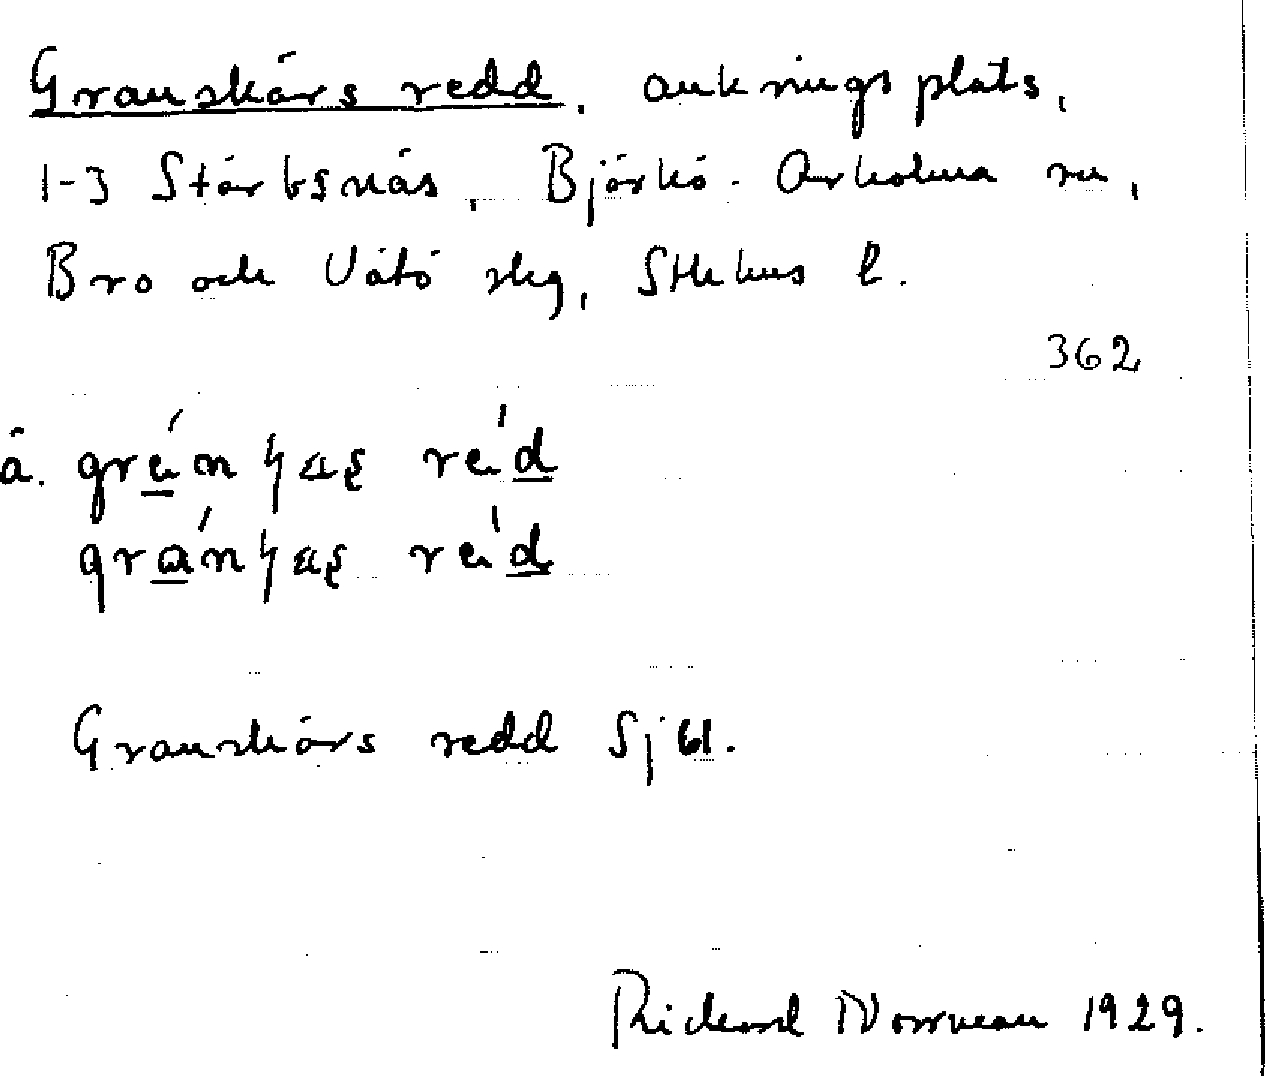 Granskärs redd, ankringsplats,
1-3 Störtsnäs, Björkö-Arholma sn,
Bro och Vätö skg, Sthlms l.
362
å.
Granskärs redd Sjbl.
Rickard Norrman 1929.